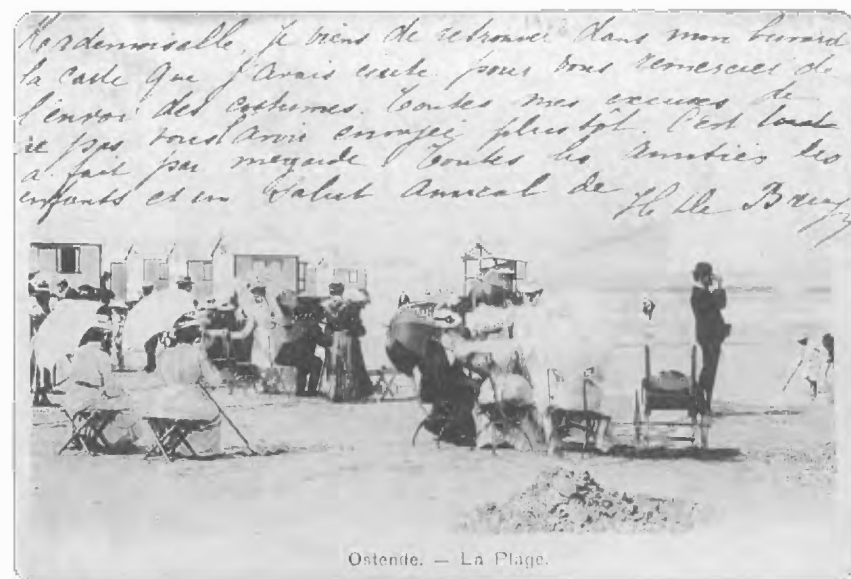 Mademoiselle, je viens de retrouver dans mon buvard
la carte que j'avais écrite pour vous remercier de
l'envoi des costumes. Toutes mes excuses de
ne pas vous l'avoir envoyée plus tôt. C'est tout
à fait par mégarde Toutes les amitiés les
enfants et un salut amical de
H de
Ostende. — La Plage.